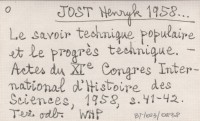 0 JOST Henryk 1958...
Le savoir technique populaire
et le progrès technique. -
Actes du XIe Congrès Inter-
national d'Histoire des
Sciences, 1958, s. 41-42.
Tez. odb. WHP